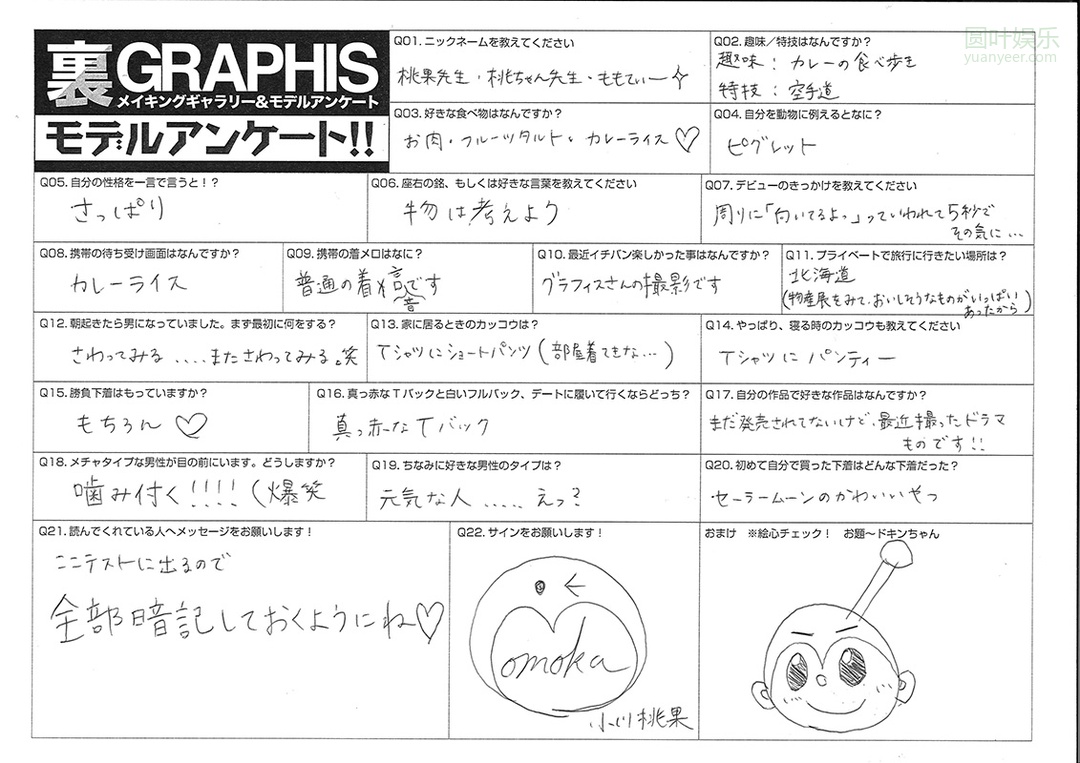 圆叶娱乐
yuanyeer.com
裏GRAPHIS
メイキングギャラリー&モデルアンケート
モデルアンケート!!
Q01. ニックネームを教えてください
桃果先生・桃ちゃん先生・ももてぃー
Q02. 趣味／特技はなんですか？
趣味：カレーの食べ歩き
特技：空手道
Q03. 好きな食べ物はなんですか？
お肉・フルーツタルト・カレーライス♡
Q04. 自分を動物に例えるとなに？
ピグレット
Q05. 自分の性格を一言で言うと！？
さっぱり
Q06. 座右の銘、もしくは好きな言葉を教えてください
物は考えよう
Q07. デビューのきっかけを教えてください
周りに「向いてるよっ」っていわれて5秒で
その気に...
Q08. 携帯の待ち受け画面はなんですか？
カレーライス
Q09. 携帯の着メロはなに？
普通の着信音です
Q10. 最近イチバン楽しかった事はなんですか？
グラフィスさんの撮影です
Q11. プライベートで旅行に行きたい場所は？
北海道
(物産展をみて、おいしそうなものがいっぱい
あったから)
Q12. 朝起きたら男になっていました。まず最初に何をする？
さわってみる....またさわってみる。笑
Q13. 家に居るときのカッコウは？
Tシャツにショートパンツ(部屋着てきな...)
Q14. やっぱり、寝る時のカッコウも教えてください
Tシャツにパンティー
Q15. 勝負下着はもっていますか？
もちろん♡
Q16. 真っ赤なTバックと白いフルバック、デートに履いて行くならどっち？
真っ赤なTバック
Q17. 自分の作品で好きな作品はなんですか？
まだ発売されてないけど、最近撮ったドラマ
ものです!!
Q18. メチャタイプな男性が目の前にいます。どうしますか？
噛み付く!!!!(爆笑
Q19. ちなみに好きな男性のタイプは？
元気な人.....えっ?
Q20. 初めて自分で買った下着はどんな下着だった？
セーラームーンのかわいいやつ
Q21. 読んでくれている人へメッセージをお願いします！
ここテストに出るので
全部暗記しておくようにね♡
Q22. サインをお願いします！
omoka
小川桃果
おまけ ※絵心チェック！ お題～ドキンちゃん